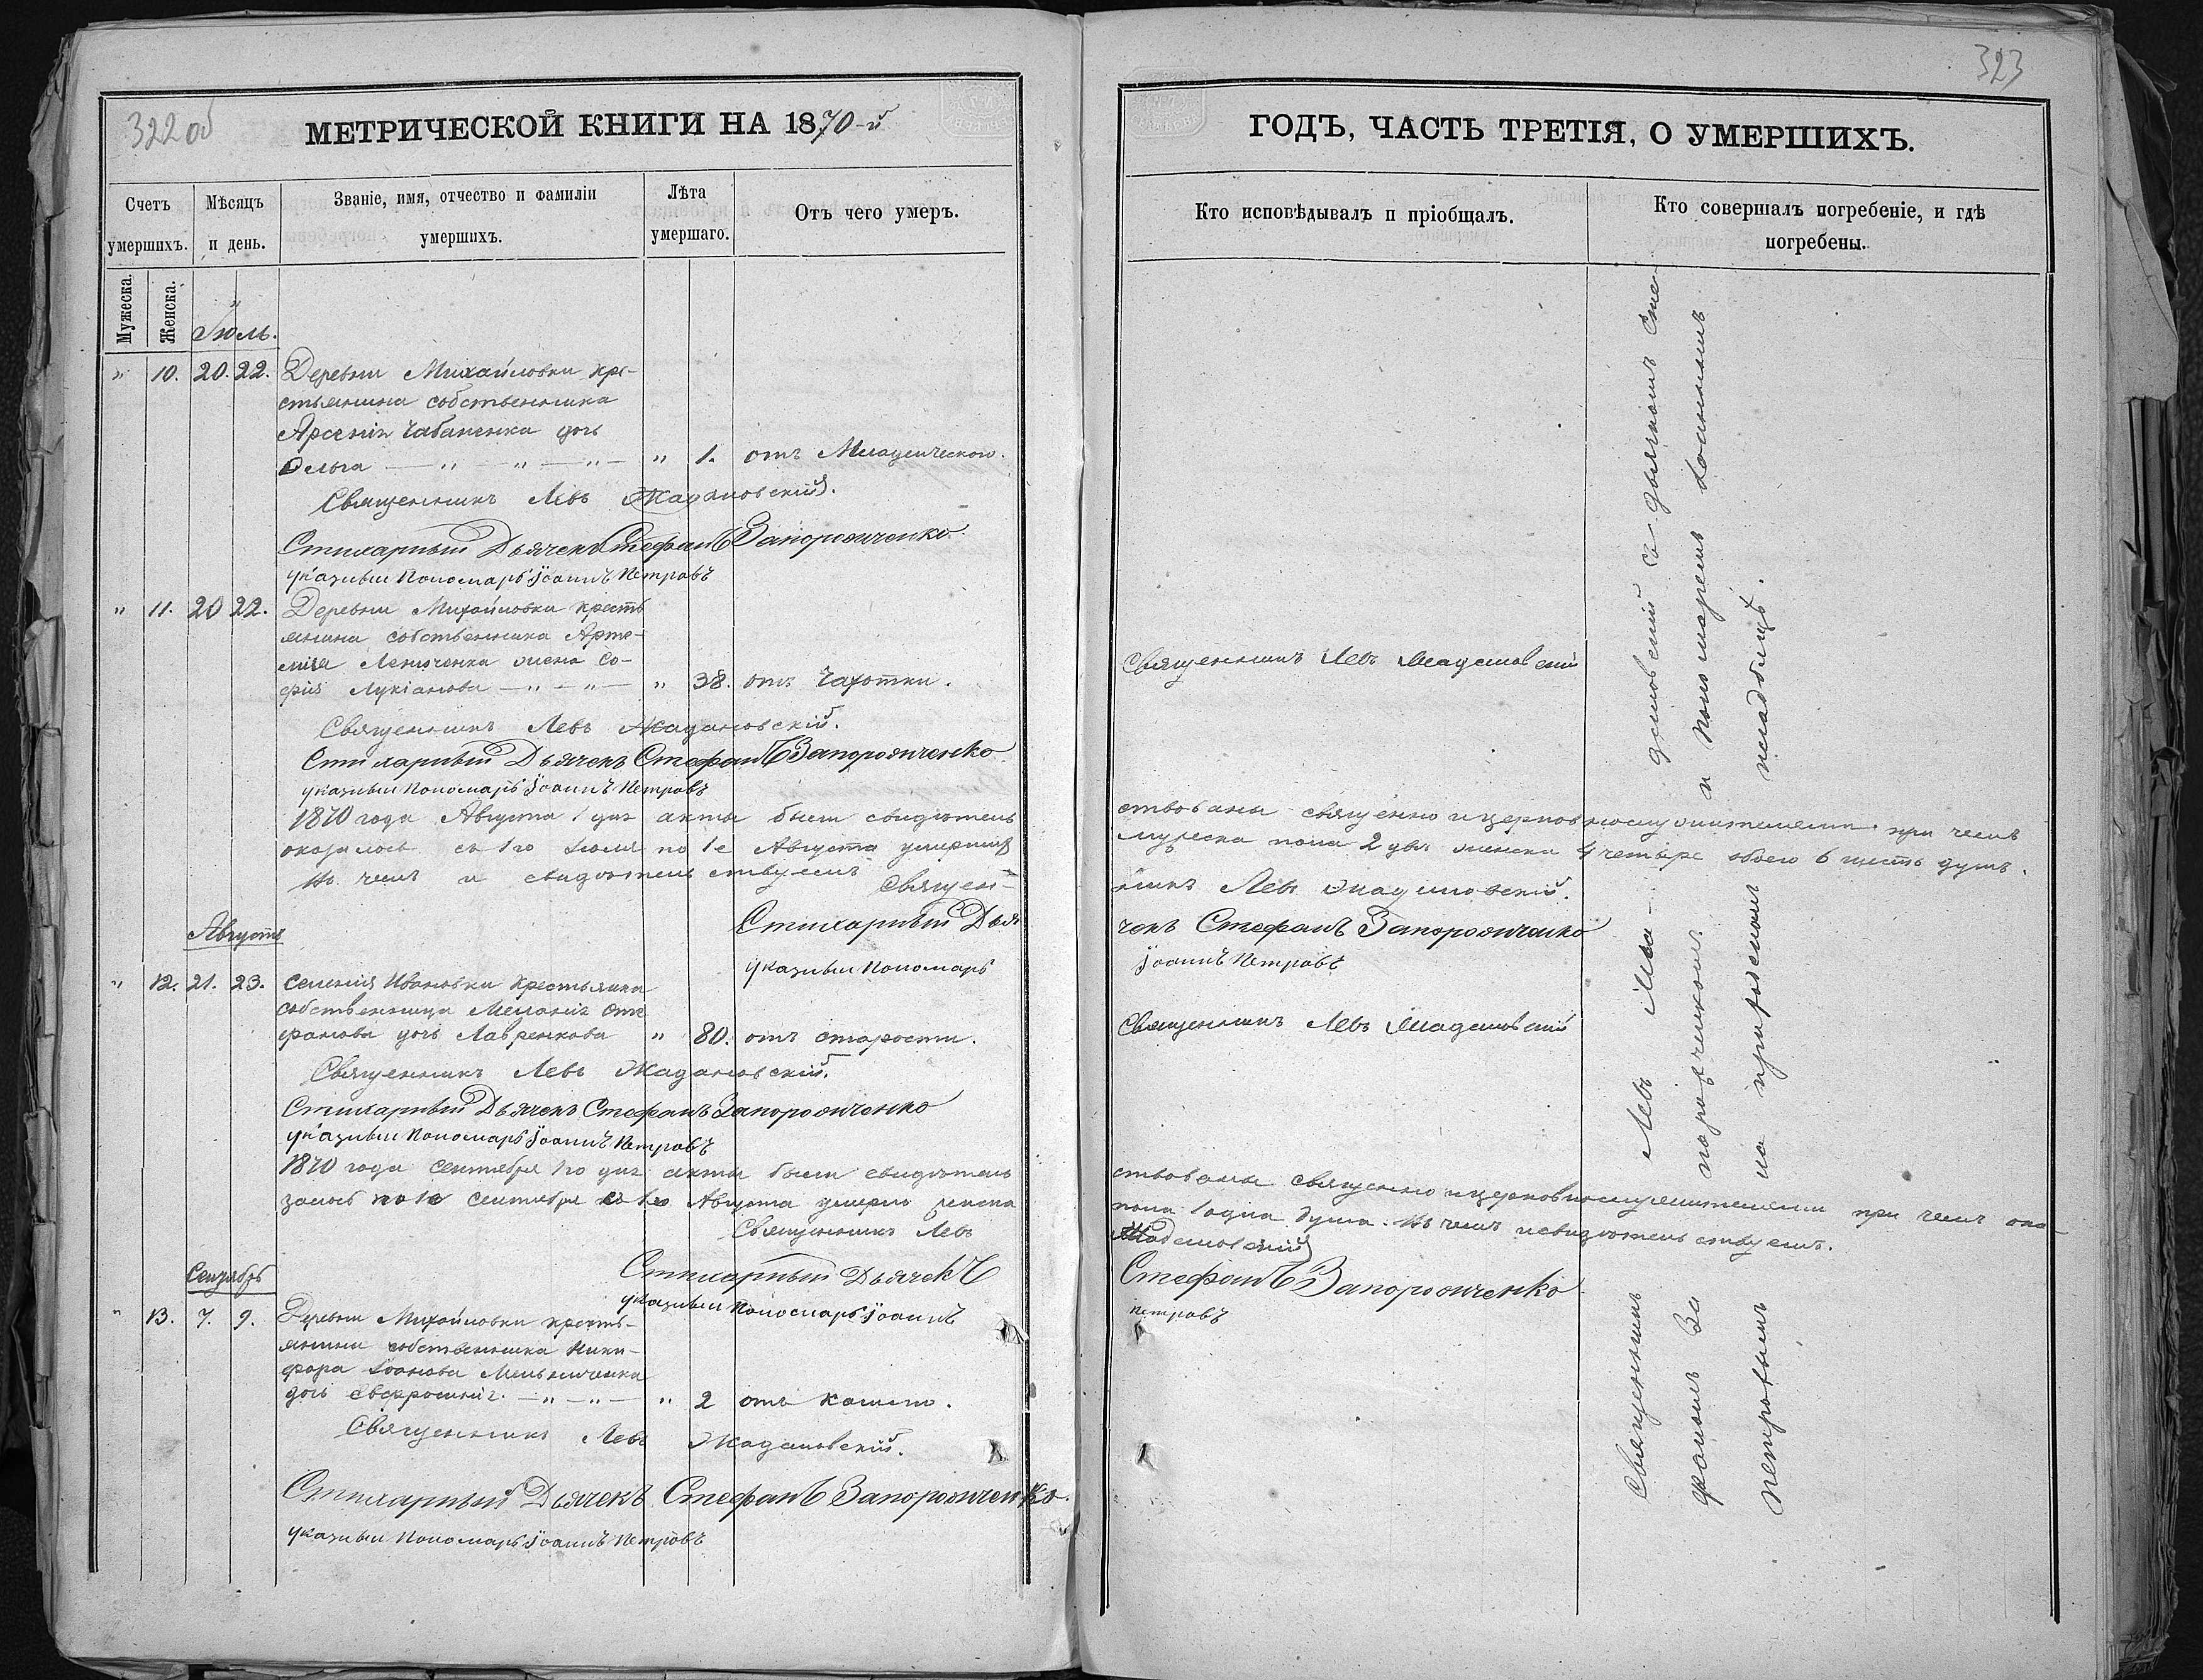 322 об
МЕТРИЧЕСКОЙ КНИГИ НА 1870-й
Счетъ умершихъ.
Мѣсяцъ и день.
Званіе, имя, отчество и фамиліи умершихъ.
Лѣта умершаго.
Отъ чего умеръ.
Мужеска.
Женска.
Іюль.
" 10. 20. 22. Деревни Михайловки кре-
стьянина собственника
Арсенія Чабаненка дочь
Ольга — " — " — " — " 1. отъ Младенческого.
Священникъ Левъ Жадановскій.
Стихарный Дьячекъ Стефанъ Запорожченко
указный Пономарь Іоаннъ Петровъ
" 11. 20 22. Деревни Михайловки кресть
янина собственника Арте-
мія жена Со-
фія Лукіанова — " — " — " 38. отъ Чахотки.
Священникъ Левъ Жадановскій.
Стихарный Дьячекъ Стефанъ Запорожченко
указный Пономарь Іоаннъ Петровъ
1870 года Августа 1 дня акты были свидѣтель
оказалось съ 1го Іюля по 1е Августа умершихъ
Въ чемъ и свидѣтельствуемъ Священ-
Стихарный Дья
Августъ
указный Пономарь
" 12. 21. 23. Селенія Ивановки Крестьянка
собственница Меланія Сте
фанова дочь Лавренкова " 80. отъ старости.
Священникъ Левъ Жадановскій.
Стихарный Дьячекъ Стефанъ Запорожченко
указный Пономарь Іоаннъ Петровъ
1870 года Сентября 1го дня акты были свидѣтель
залось по 1е Сентября съ 1го Августа умерло женска
Священникъ Левъ
Стихарный Дьячекъ
Сентябрь
указный Пономарь Іоаннъ
" 13. 7. 9. Деревни Михайловки кресть-
янина собственника Ники-
фора Іоанова Мельниченка
дочь Евфросинія. — " — " — " 2 отъ кашлю.
Священникъ Левъ Жадановскій.
Стихарный Дьячекъ Стефанъ Запорожченко.
указный Пономарь Іоаннъ Петровъ
323
ГОДЪ, ЧАСТЬ ТРЕТІЯ, О УМЕРШИХЪ.
Кто исповѣдывалъ и пріобщалъ.
Кто совершалъ погребеніе, и гдѣ погребены.
Священникъ Левъ Жадановскій
ствованы священно и церковнослужителями при чемъ
мужеска пола 2 два женска 4 четыре обоего 6 шесть душъ.
никъ Левъ Жадановскій.
чекъ Стефанъ Запорожченко
Іоаннъ Петровъ
Священникъ Левъ Жадановскій
ствованы священно и церковнослужителями при чемъ ока-
пола 1 одна душа. Въ чемъ и свидѣтельствуемъ.
Жадановскій
Стефанъ Запорожченко
Петровъ
Священникъ Левъ Жа-дановскій съ дьячкомъ Сте-
фаномъ Запорожченкомъ и пономаремъ Іоанномъ
Петровымъ на приходскомъ кладбищѣ.